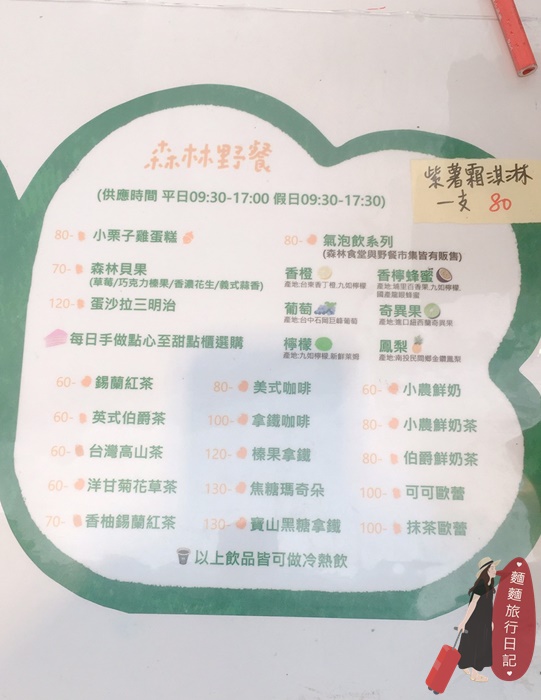 森林野餐
紫薯霜淇淋
一支 80
(供應時間 平日09:30-17:00 假日09:30-17:30)
80- 小栗子雞蛋糕
70- 森林貝果
(草莓/巧克力榛果/香濃花生/義式蒜香)
120- 蛋沙拉三明治
每日手做點心至甜點櫃選購
80- 氣泡飲系列
(森林食堂與野餐市集皆有販售)
香橙
產地:台東香丁橙,九如檸檬
香檸蜂蜜
產地:埔里百香果,九如檸檬,
國產龍眼蜂蜜
葡萄
產地:台中石岡巨峰葡萄
奇異果
產地:進口紐西蘭奇異果
檸檬
產地:九如檸檬,新鮮萊姆
鳳梨
產地:南投民間鄉金鑽鳳梨
60- 錫蘭紅茶
60- 英式伯爵茶
60- 台灣高山茶
60- 洋甘菊花草茶
70- 香柚錫蘭紅茶
80- 美式咖啡
100- 拿鐵咖啡
120- 榛果拿鐵
130- 焦糖瑪奇朵
130- 寶山黑糖拿鐵
60- 小農鮮奶
80- 小農鮮奶茶
80- 伯爵鮮奶茶
100- 可可歐蕾
100- 抹茶歐蕾
以上飲品皆可做冷熱飲
麵麵旅行日記